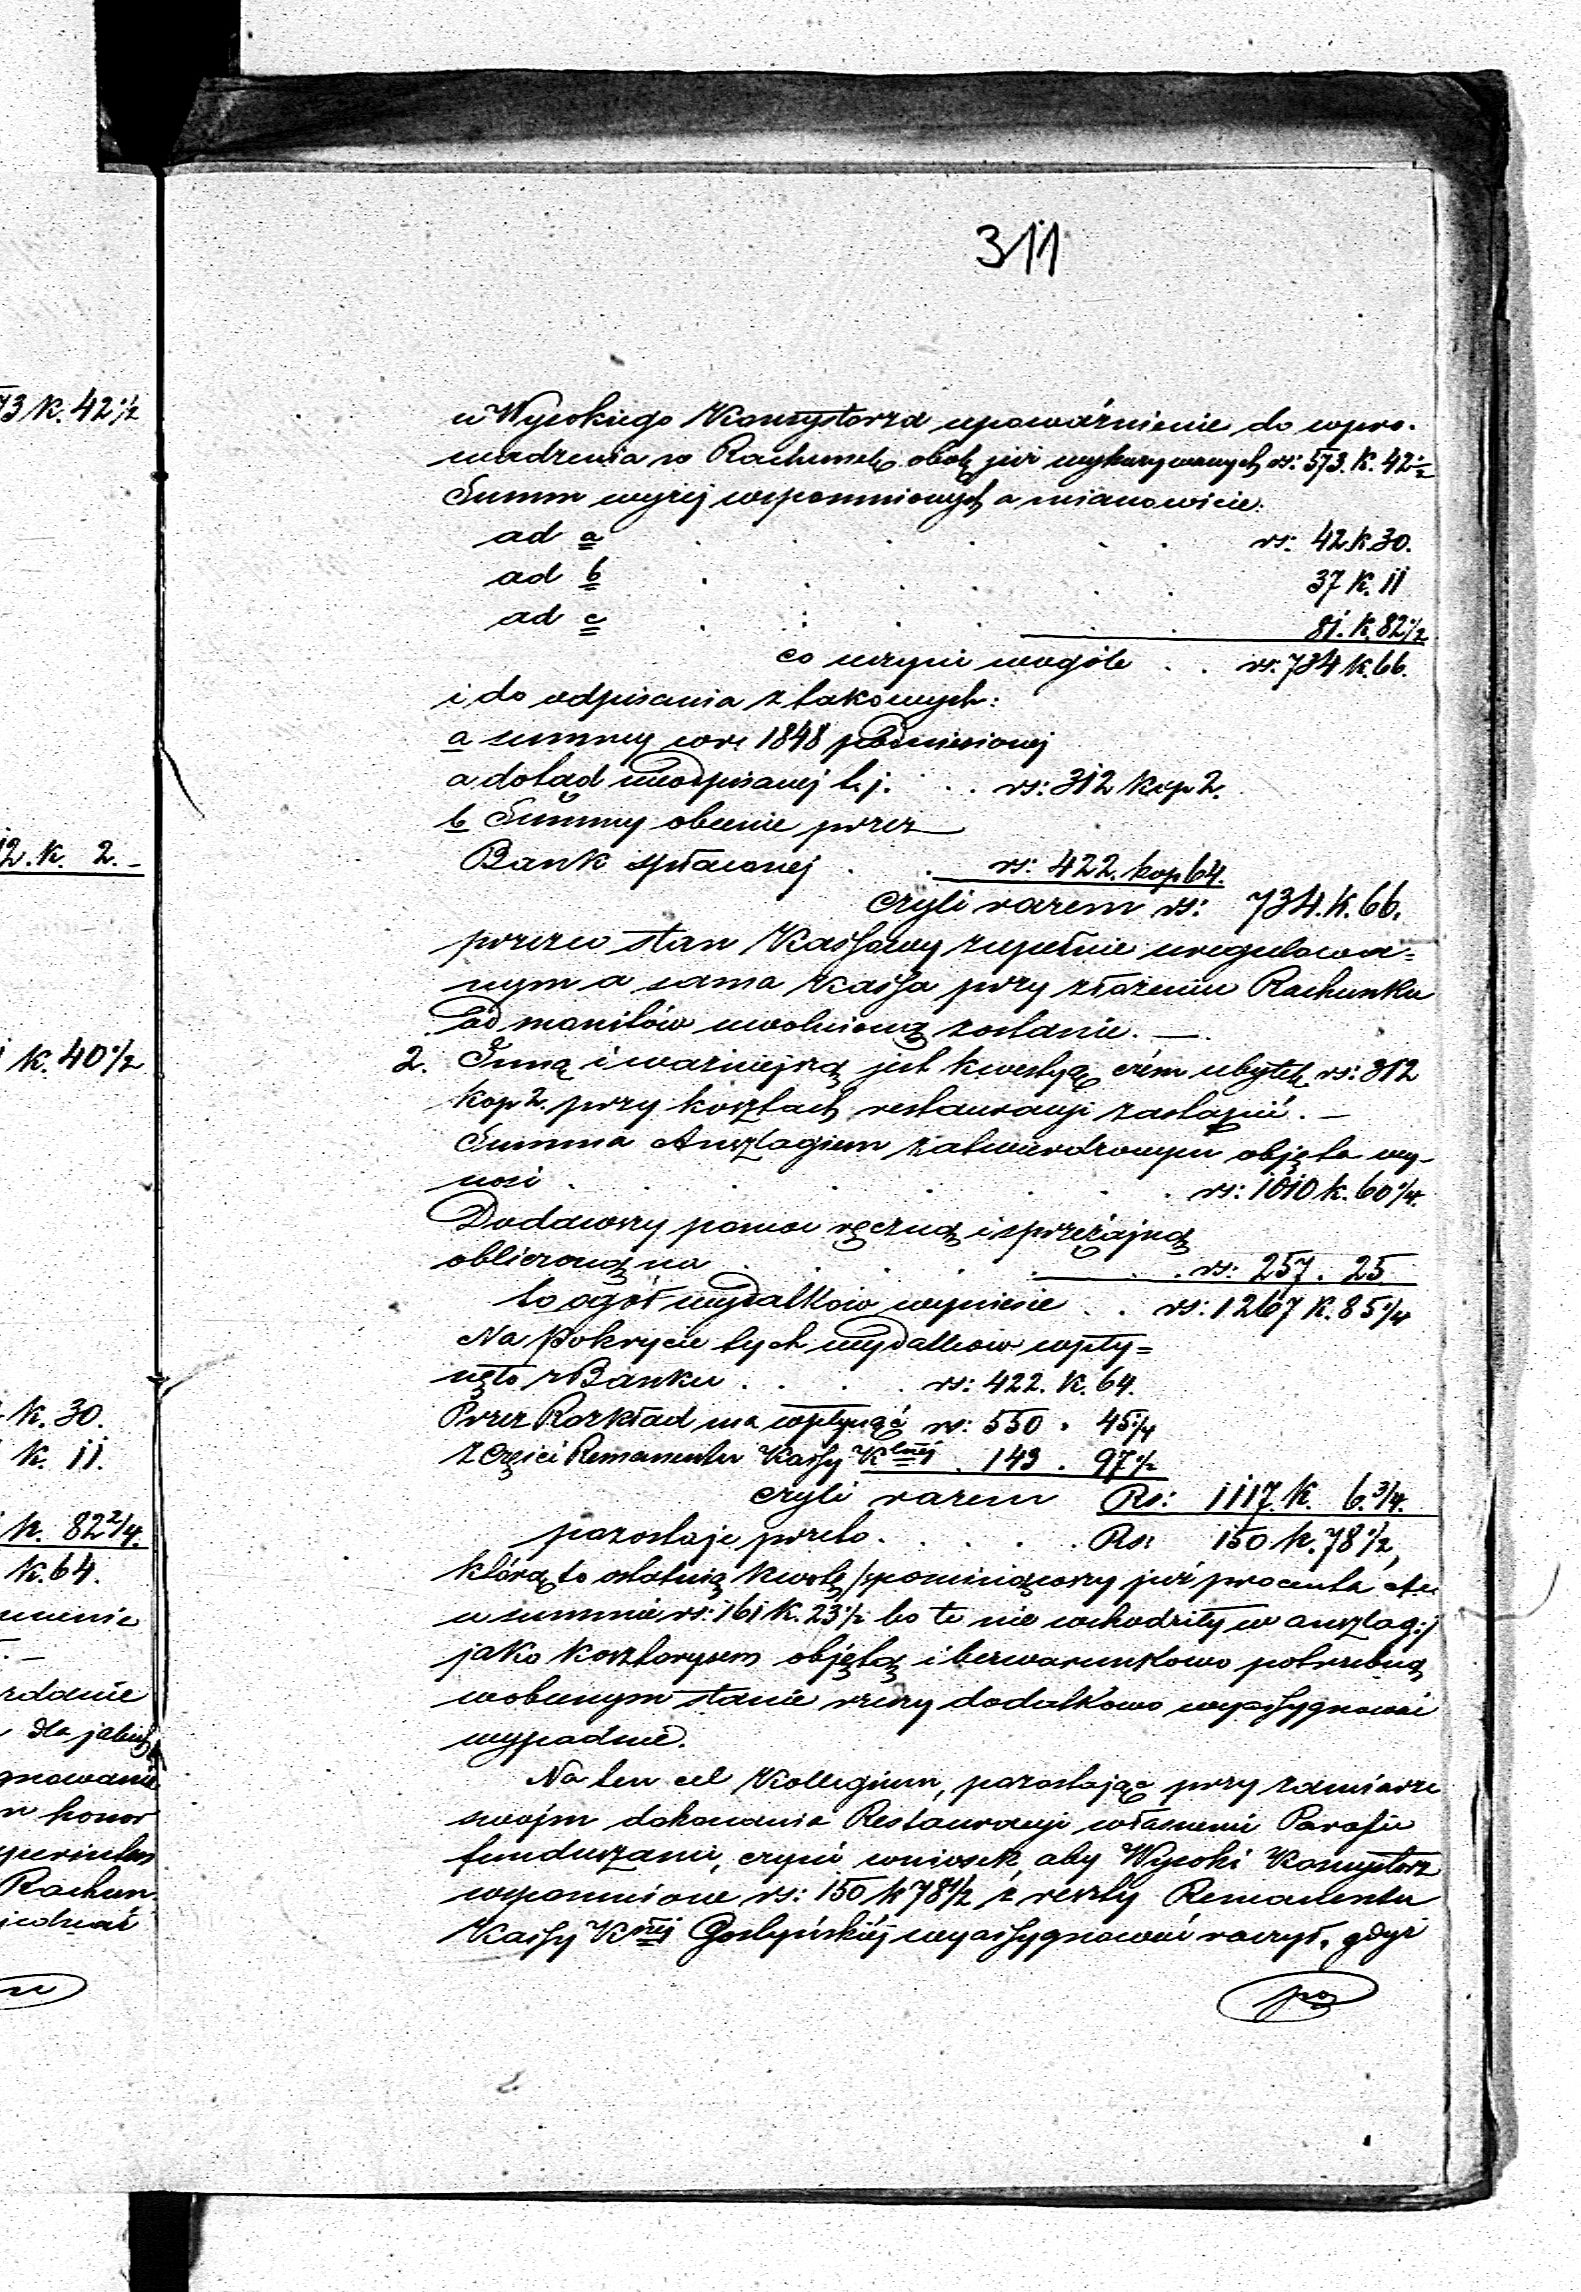 311
u Wysokiego Konsystorza upoważnienie do wpro-
wadzenia w Rachunek obok już wykazywanych rs: 573. k. 42½
Summ wyżej wspomnionych a mianowicie:
ad a . . . . . . rs: 42 k. 30.
ad b . . . . . . 37 k. 11
ad c . . . . . . 81. k. 82½
co uczyni wogóle . . rs: 734 k. 66.
i do odpisania z takowych:
a summy w r. 1848 podniesionej
a dotąd nieodpisanej t. j. . . rs: 312 kop 2.
b Summy obecnie przez
Bank spłaconej . . rs: 422. kop 64.
czyli razem rs: 734. k. 66.
przezco stan Kassowy zupełnie uregulowa=
nym a sama Kassa przy złożeniu Rachunku
od monitów uwolnioną zostanie. —
2. Inną i ważniejszą jest kwestyą czém ubytek rs: 312
kop 2. przy kosztach restauracji zastąpić. —
Summa Anszlagiem zatwierdzonym objęta wy-
nosi . . . . . . . rs: 1010 k. 60¼.
Dodawszy pomoc ręczną i sprzężajną
obliczoną na . . . . . . rs: 257. 25
to ogół wydatków wyniesie . . rs: 1267 k. 85¼
Na pokrycie tych wydatków wpły=
nęło z Banku . . . . rs: 422. k. 64.
Przez Rozkład ma wpłynąć rs: 550 . 45¼
z części Remanentu Kassy Klnej . 143 . 97½
czyli razem Rs: 1117. k. 6.¾.
pozostaje przeto . . . . . Rs: 150 k. 78½,
którą to ostatnią kwotę /:pominąwszy już procenta
w summie rs: 161 k. 23½ bo te nie wchodziły w anszlag:/
jako kosztorysem objętą i bezwarunkowo potrzebną
w obecnym stanie rzeczy dodatkowo wyassygnować
wypadnie.
Na ten cel Kollegium, pozostając przy zamiarze
swoim dokonania Restauracyi własnemi Parafii
funduszami, czyni wniosek, aby Wysoki Konsystorz
wspomnione rs: 150 k 78½ z reszty Remanentu
Kassy Knej Gostyńskiej wyassygnować raczył, gdyż
po
73 k. 42½
12. k. 2. -
k. 40½
k. 30.
k. 11.
k. 82 2/4.
k. 64.
dla jakich
gnowanie
n honor
perinten
Rachun-